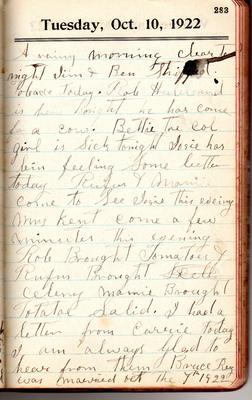 283
Tuesday, Oct. 10, 1922
A rainy morning clear to
night Jim & Ben
tobaco today. Rob
is here tonight he has come
for a cow. Bettie the col
girl is sick tonight Josie has
bein feeling some better
today Rufus & Mamie
come to see Josie this evening
Mrs Kent come a few
minutes this evening
Rob Brought Tomatoes &
Rufus Brought
Celery Mamie Brought
Potatal Salid. I had a
letter from Carrie today
I am always glad to
hear from them Bruce Rey
was married oct the 7th 1922